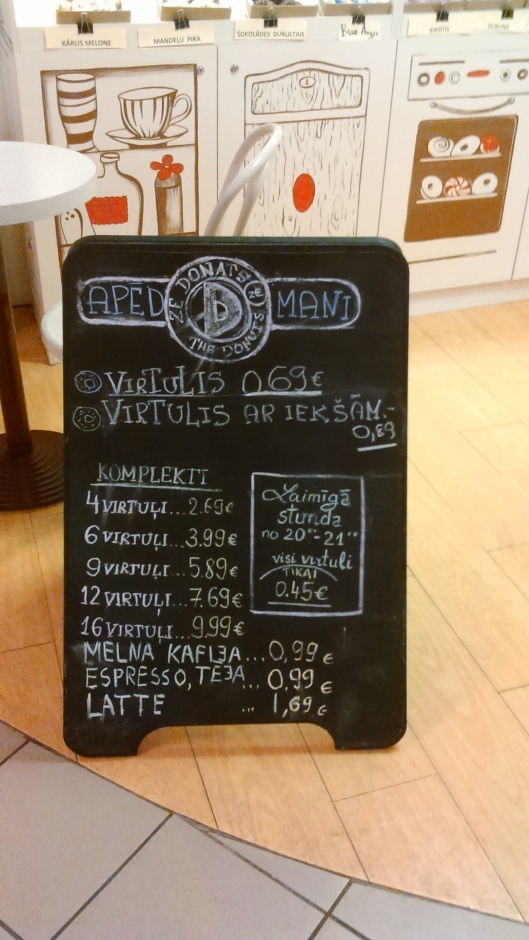 KĀRLIS MELONE
MANDEĻU PIKA
ŠOKOLĀDES DUBULTAIS
APĒD MANI
ZE DONATS
D
THE DONUTS
VIRTULIS 0,69€
VIRTULIS AR IEKŠĀM.-
0,89
KOMPLEKTI
4 VIRTUĻI...2.69€
6 VIRTUĻI...3.99€
9 VIRTUĻI...5.89€
12 VIRTUĻI...7.69€
16 VIRTUĻI...9.99€
Laimīgā
stunda
no 20⁰⁰-21⁰⁰
visi virtuļi
TIKAI
0.45€
MELNA KAFIJA...0,99€
ESPRESSO, TĒJA...0,99€
LATTE ...1,69€